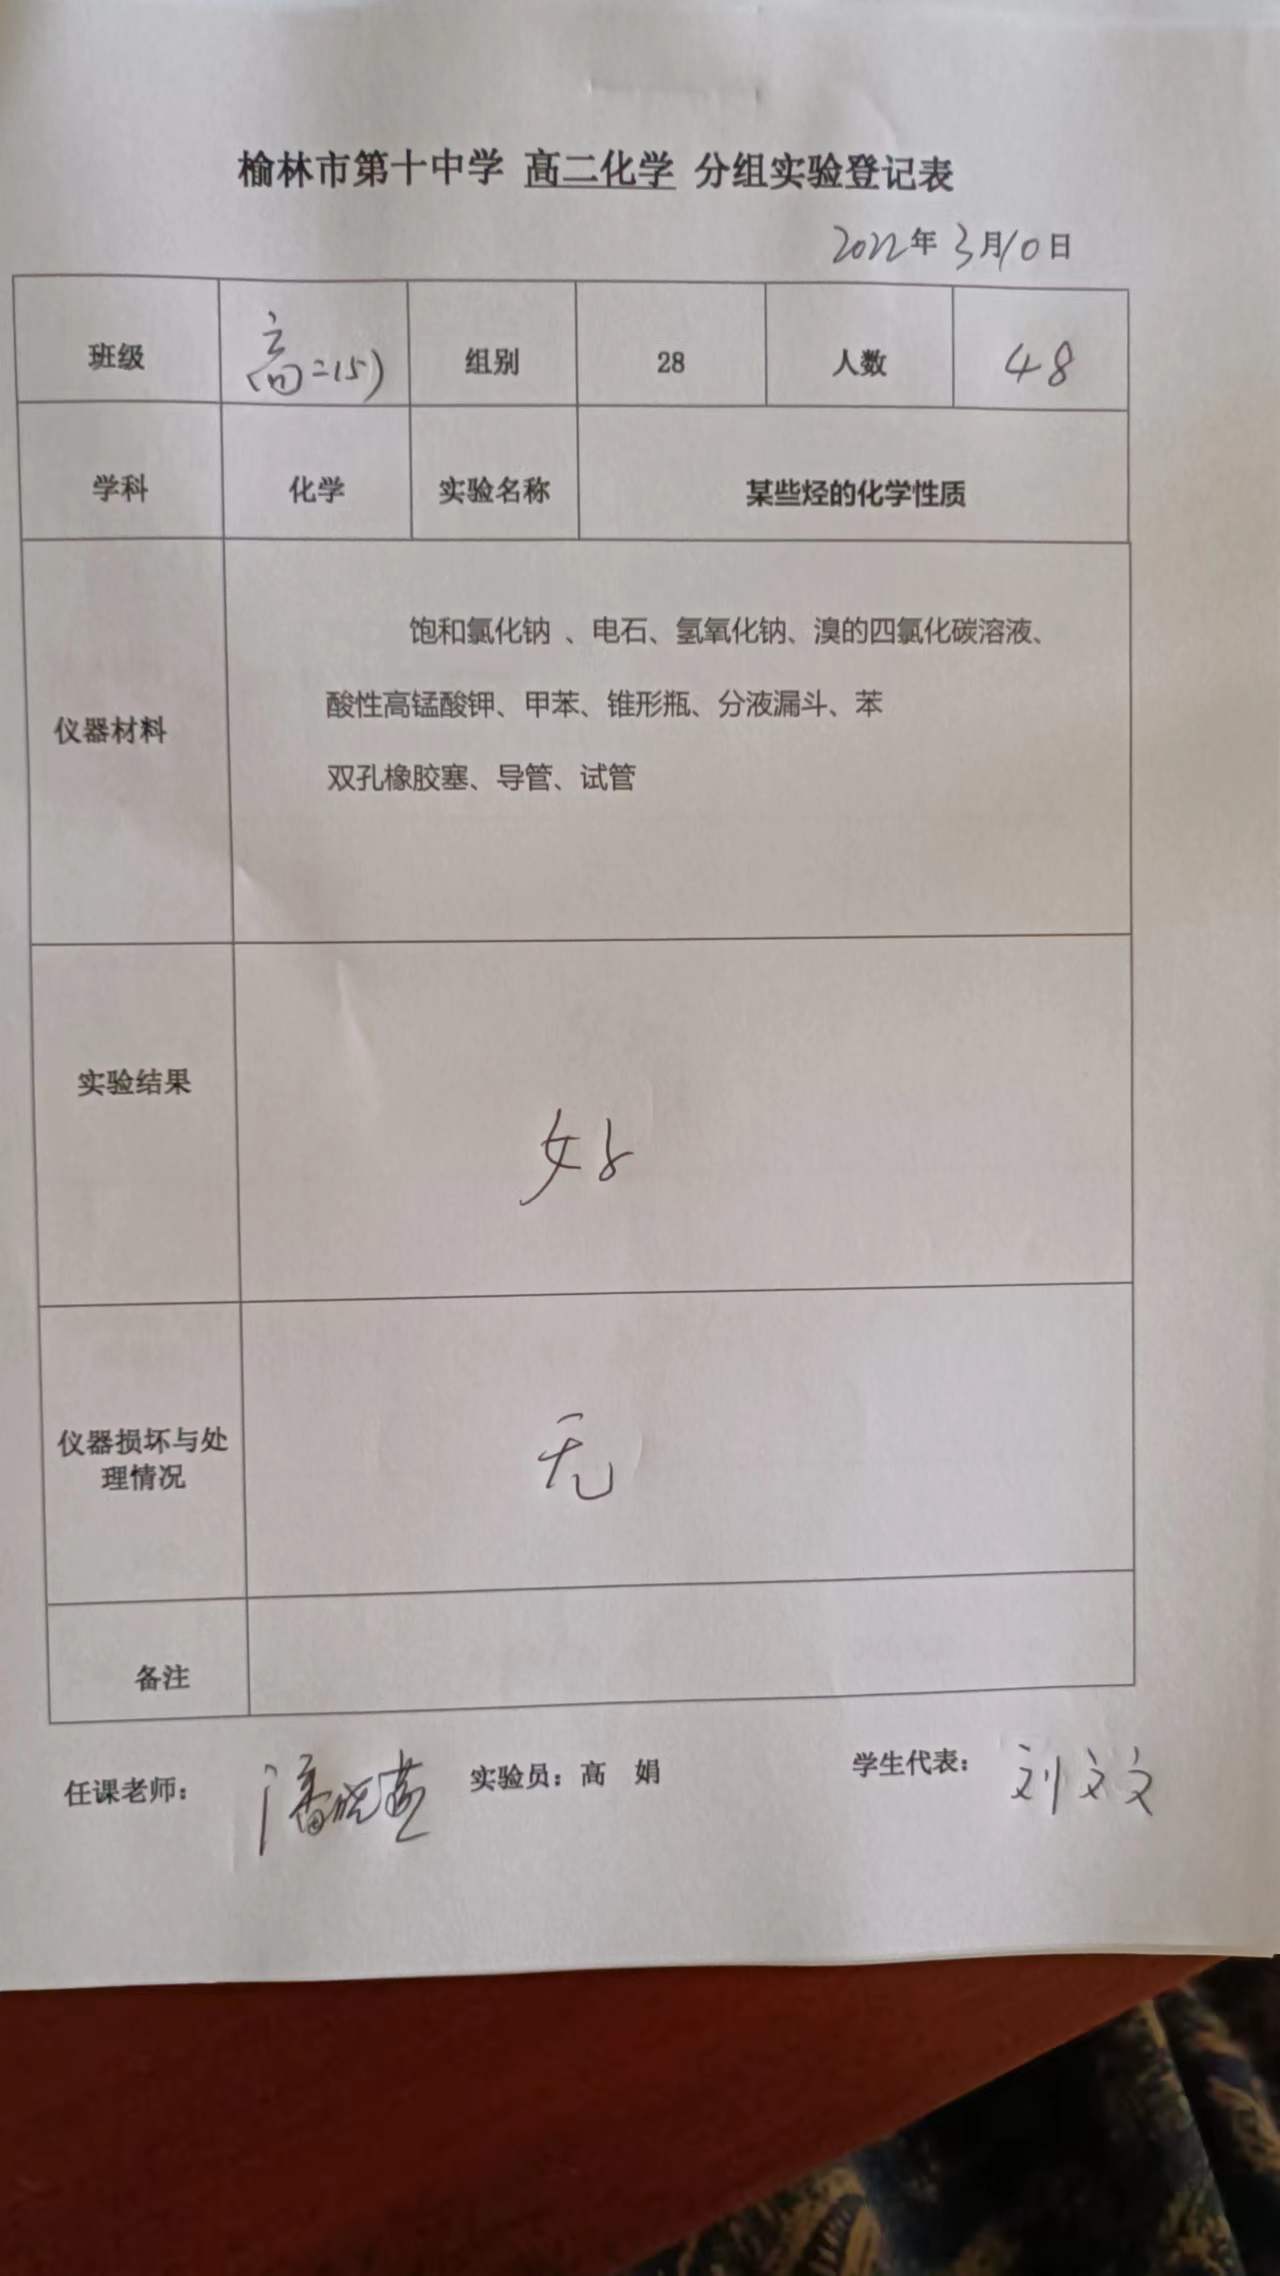 榆林市第十中学 高二化学 分组实验登记表
2022年3月10日
班级 高二(5) 组别 28 人数 48
学科 化学 实验名称 某些烃的化学性质
仪器材料
饱和氯化钠 、电石、氢氧化钠、溴的四氯化碳溶液、
酸性高锰酸钾、甲苯、锥形瓶、分液漏斗、苯
双孔橡胶塞、导管、试管
实验结果 好
仪器损坏与处
理情况
无
备注
任课老师： 潘晓燕 实验员：高 娟 学生代表： 刘文文